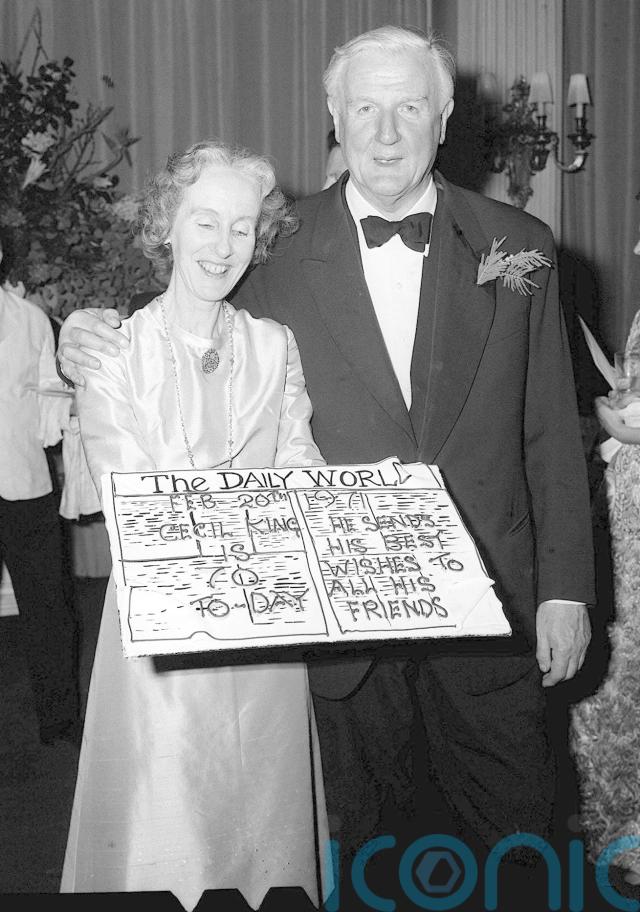 The DAILY WORLD
FEB 20TH 1971
CECIL KING
IS
70
TO-DAY
HE SENDS
HIS BEST
WISHES TO
ALL HIS
FRIENDS
iconic